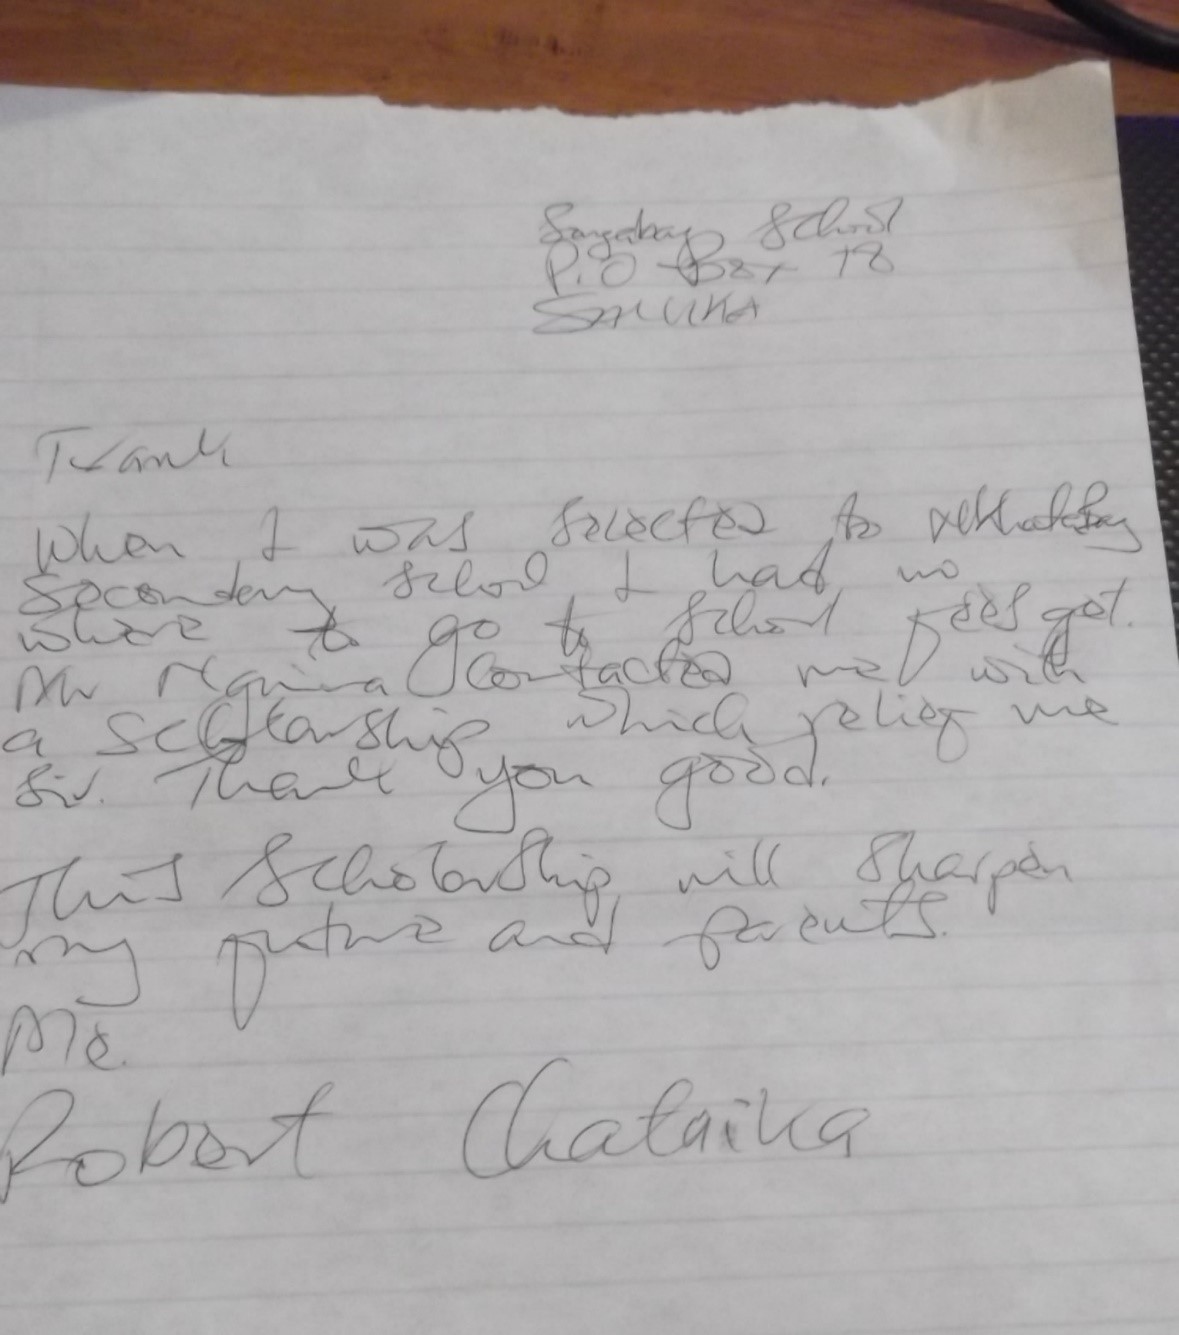 School
P.O Box 18
SALIMA
Thank
When I was selected to
Secondary school I had no
where to go to school fees got.
Mr contacted me with
a scholarship which relief me
sir. Thank you good.
This scholarship will sharpen
my future and parents.
Me.
Robert Chataika